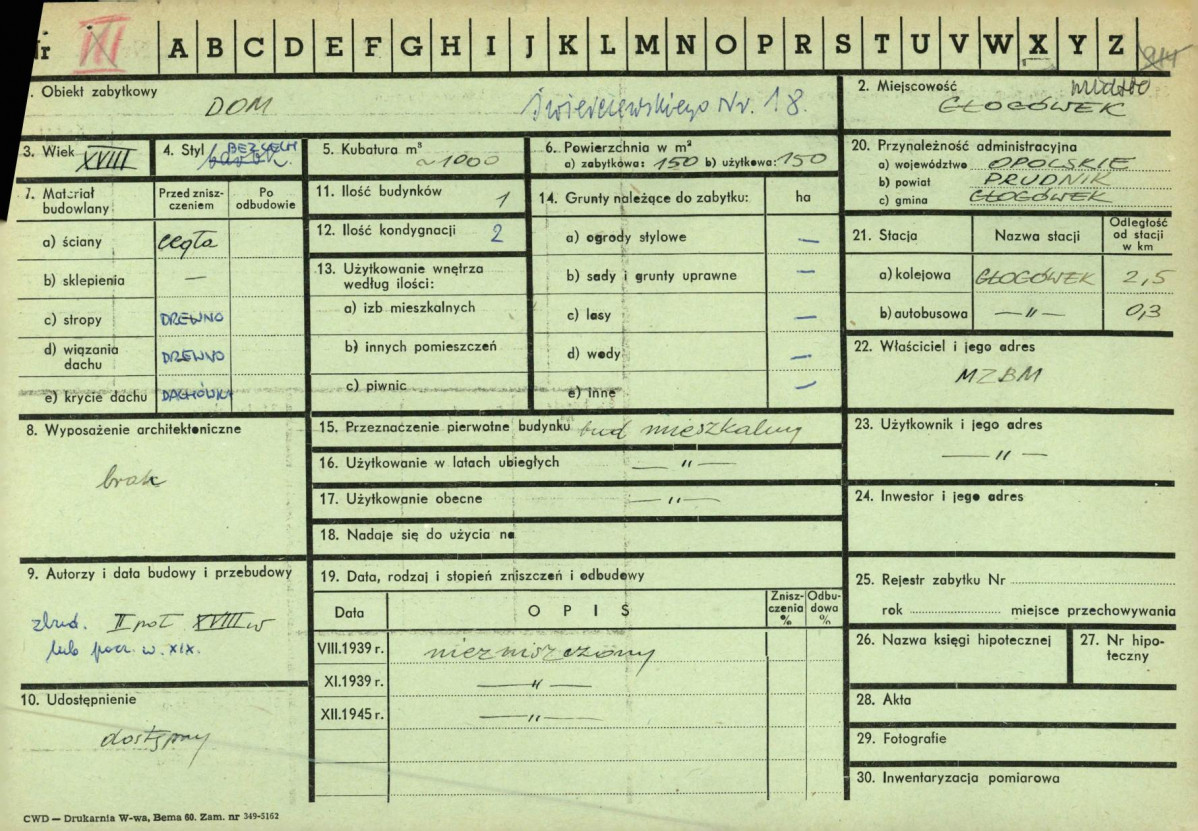 Nr III A B C D E F G H I J K L M N O P R S T U V W X Y Z
1. Obiekt zabytkowy DOM Świerczewskiego Nr. 18.
2. Miejscowość miasto
GŁOGÓWEK
3. Wiek XVIII
4. Styl BEZ CECH
barok.
5. Kubatura m³ ~1000
6. Powierzchnia w m²
a) zabytkowa: 150 b) użytkowa: 150
20. Przynależność administracyjna
a) województwo OPOLSKIE
b) powiat PRUDNIK
c) gmina GŁOGÓWEK
7. Materiał budowlany
Przed zniszczeniem
Po odbudowie
a) ściany cegła
b) sklepienia —
c) stropy DREWNO
d) wiązania dachu DREWNO
e) krycie dachu DACHÓWKA
11. Ilość budynków 1
12. Ilość kondygnacji 2
13. Użytkowanie wnętrza
według ilości:
a) izb mieszkalnych
b) innych pomieszczeń
c) piwnic
14. Grunty należące do zabytku: ha
a) ogrody stylowe —
b) sady i grunty uprawne —
c) lasy —
d) wody —
e) inne —
21. Stacja Nazwa stacji Odległość od stacji w km
a) kolejowa GŁOGÓWEK 2,5
b) autobusowa —"— 0,3
22. Właściciel i jego adres
MZBM
8. Wyposażenie architektoniczne
brak
15. Przeznaczenie pierwotne budynku bud mieszkalny
16. Użytkowanie w latach ubiegłych —"—
17. Użytkowanie obecne —"—
18. Nadaje się do użycia na
23. Użytkownik i jego adres
—"—
24. Inwestor i jego adres
9. Autorzy i data budowy i przebudowy
zbud. II poł XVIII w
lub pocz. w. XIX.
10. Udostępnienie
dostępny
19. Data, rodzaj i stopień zniszczeń i odbudowy
Data OPIS Zniszczenia % Odbudowa %
VIII.1939 r. niezniszczony
XI.1939 r. —"—
XII.1945 r. —"—
25. Rejestr zabytku Nr
rok miejsce przechowywania
26. Nazwa księgi hipotecznej
27. Nr hipoteczny
28. Akta
29. Fotografie
30. Inwentaryzacja pomiarowa
CWD — Drukarnia W-wa, Bema 60. Zam. nr 349-5162